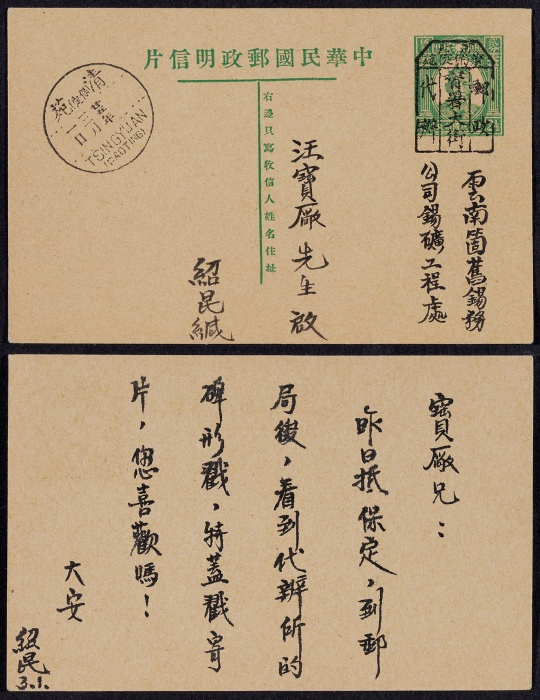 中華民國郵政明信片
右邊只寫收信人姓名住址
雲南箇舊錫務
公司錫礦工程處
汪寶厰先生啟
紹昆緘
清苑
TSINGYUAN
(PAOTING)
郵政
代辦
大街
寶厰兄：
昨日抵保定，到郵
局後，看到代辦所的
碑形戳，特蓋戳寄
片，您喜歡嗎！
大安
紹昆
3.1.